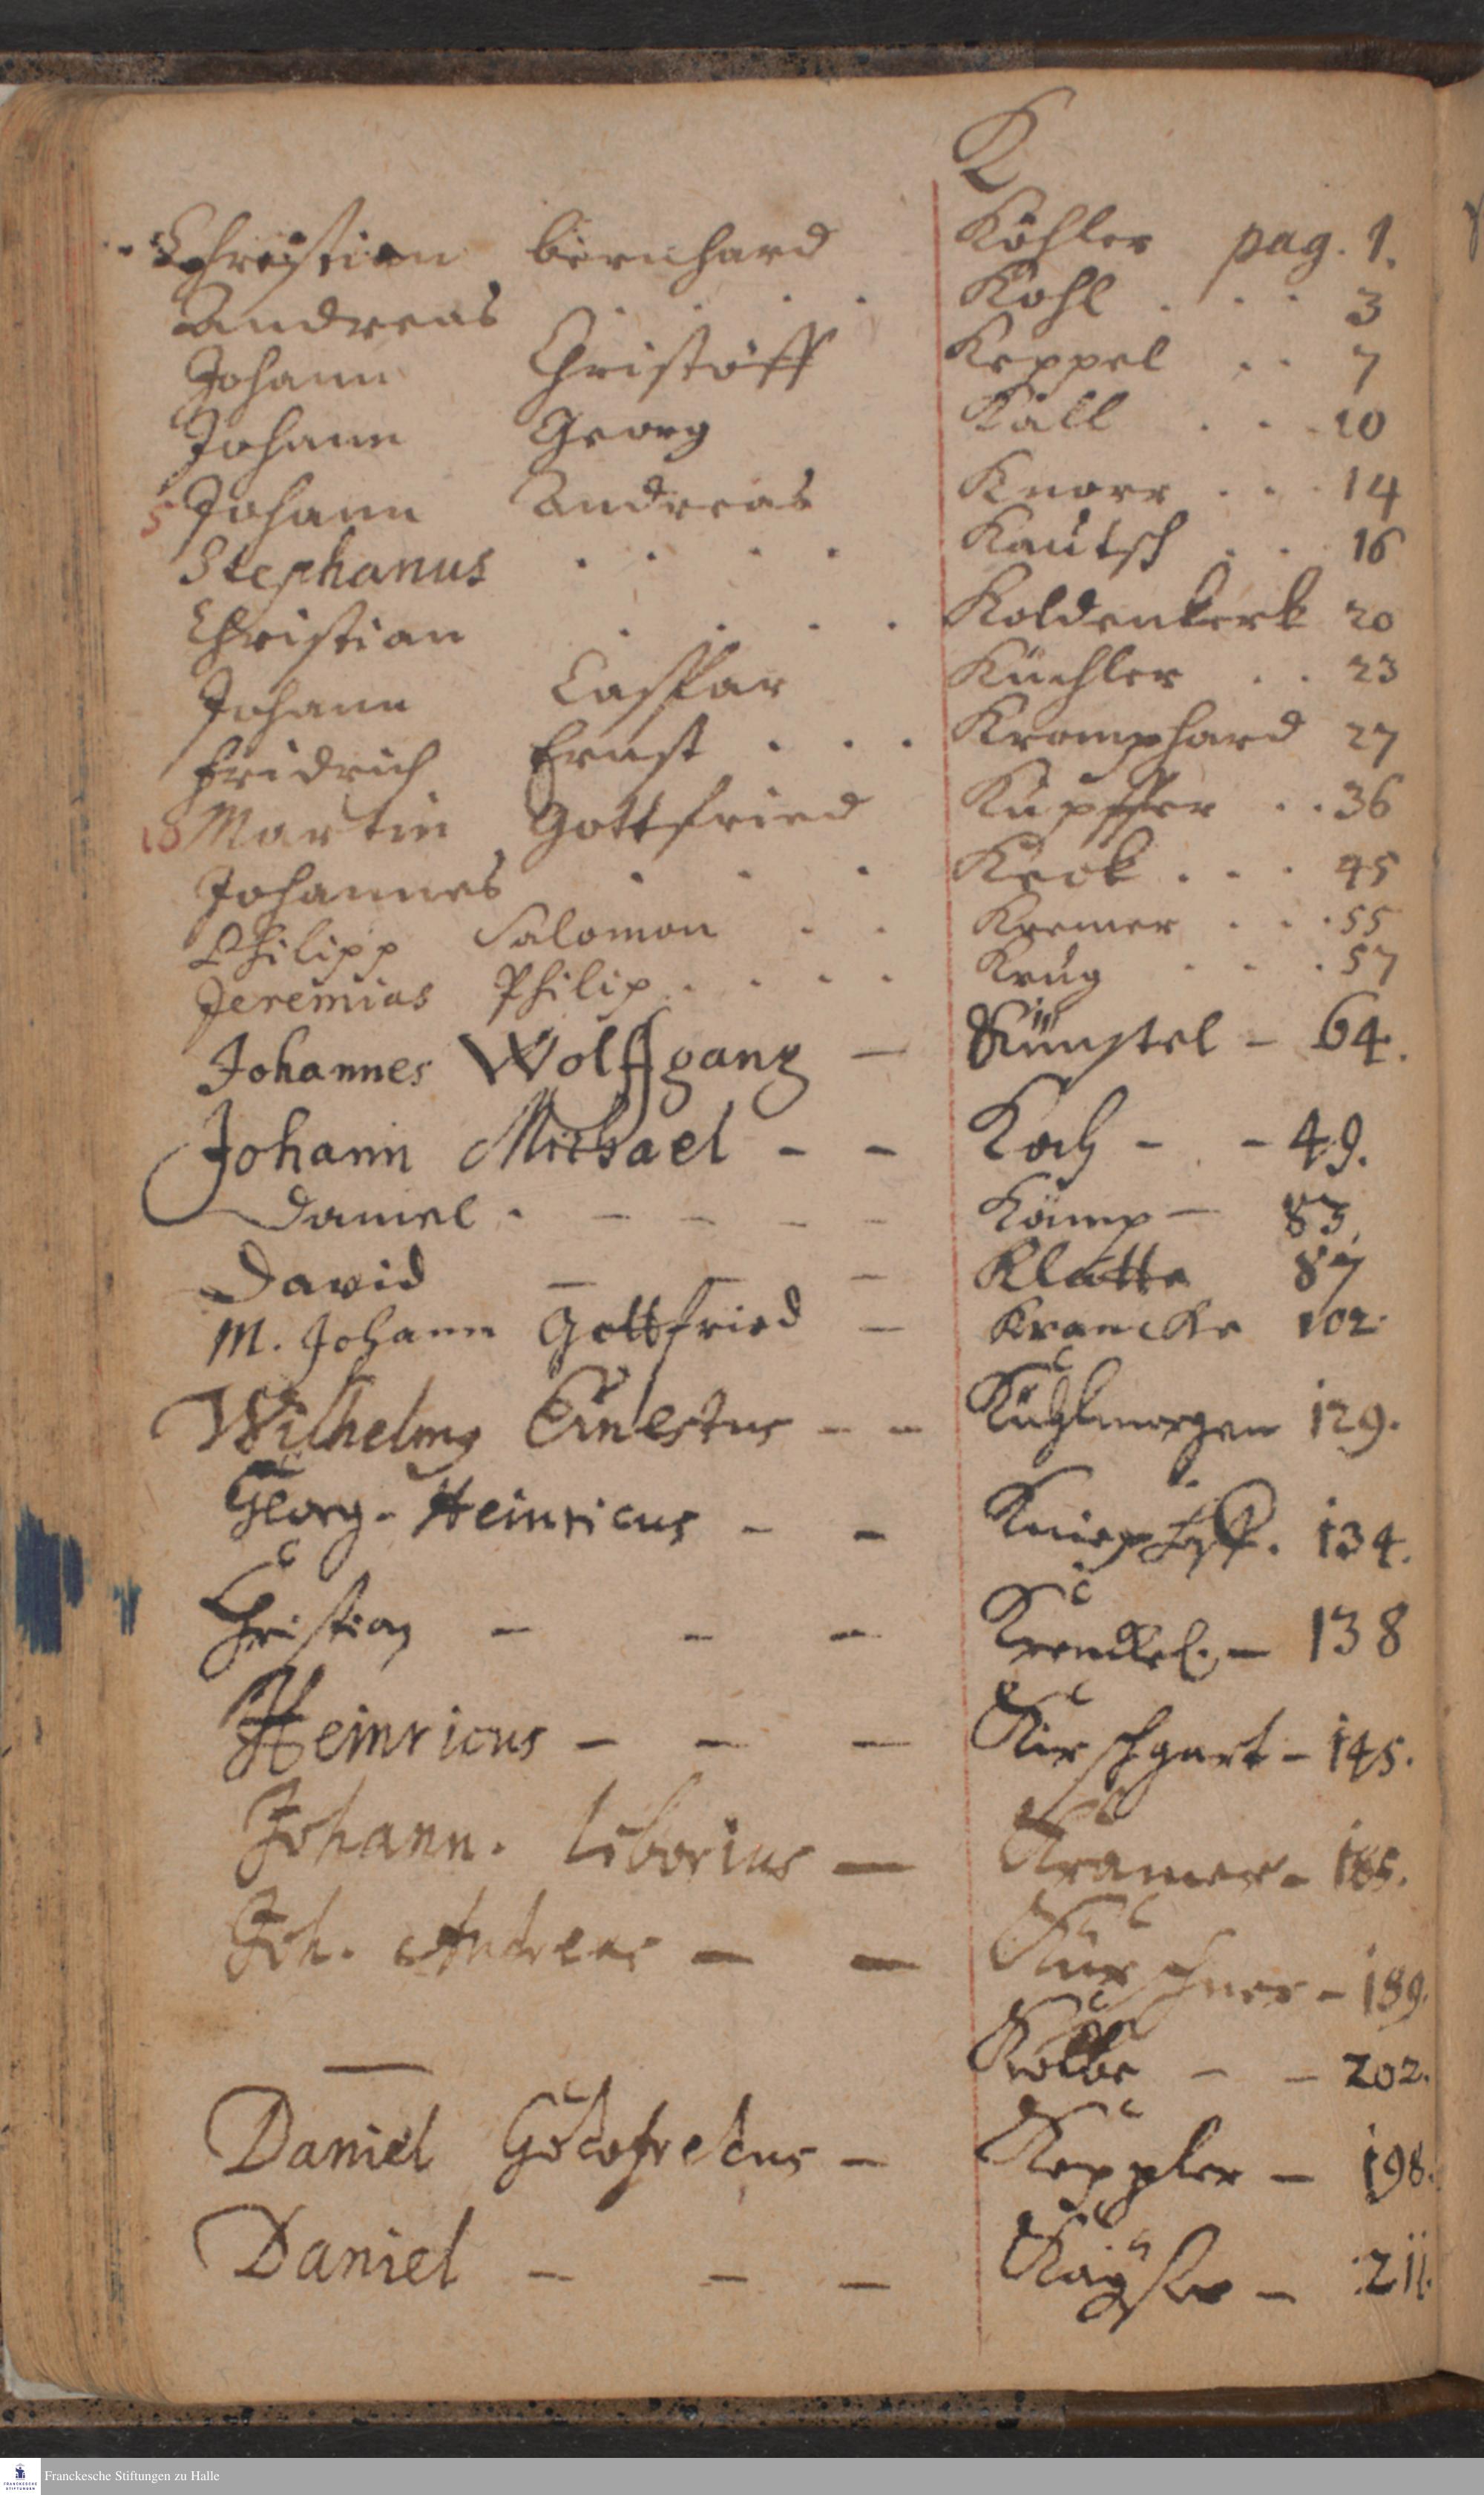 K
Christian Bernhard Köhler pag. 1.
Andreas . . . Kohl . . . 3
Johann Christoff Keppel . . 7
Johann Georg Kall . . . 10
5 Johann Andreas Knorr . . . 14
Stephanus . . . . Kautsch . . 16
Christian . . . . Koldenkerk 20
Johann Casspar Küchler . . 23
Fridrich Ernst . . . Kromphard 27
10 Martin Gottfried Kupffer . . 36
Johannes . . . Keck . . . 45
Philipp Salomon . . Kremer . . . 55
Jeremias Philip . . . . Krug . . . 57
Johannes Wolffgang — Künstel - 64.
Johann Michael - - Koch - - 49.
Daniel . - - - - Kämp — 83.
David — - — Klatte 87
M. Johann Gottfried — Krancke 102.
Wilhelmg Ernestus - - Kuhlmorgen 129.
Georg. Heinricus - - 134.
Christian - - - 138
Heinricus - - — Kirschgart - 145.
Johann. Liborius — Kramer - 185.
Joh. Andreas — — Kürschner - 189.
— Kolbe - - 202.
Daniel Godofredus - Keppler — 198.
Daniel - - — Kayser - 211.
Franckesche Stiftungen zu Halle